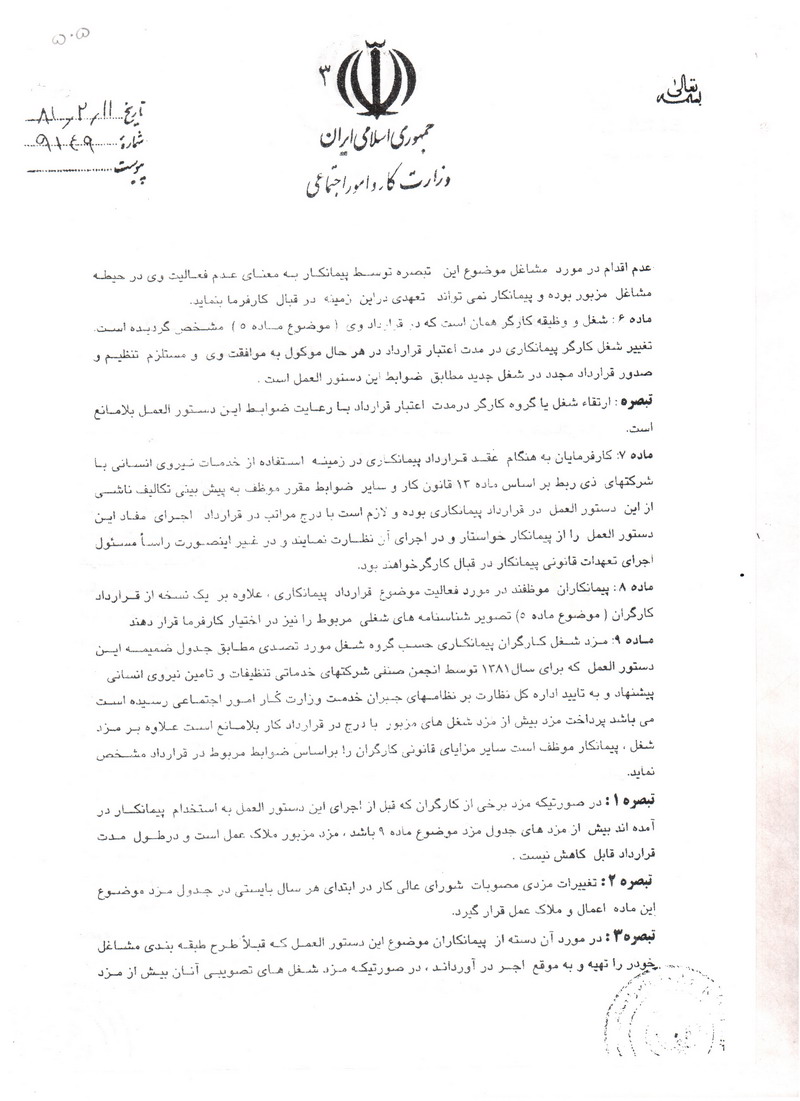 ۵۰۵
۳
بسمه تعالی
جمهوری اسلامی ایران
وزارت کار و امور اجتماعی
تاریخ ۸۱٫۲٫۱۱
شمارهٔ ۹۱۴۹
پیوست
عدم اقدام در مورد مشاغل موضوع این تبصره توسط پیمانکار به معنای عدم فعالیت وی در حیطه
مشاغل مزبور بوده و پیمانکار نمی تواند تعهدی دراین زمینه در قبال کارفرما بنماید.
ماده ۶ : شغل و وظیفه کارگر همان است که در قرارداد وی ( موضوع ماده ۵ ) مشخص گردیده است.
تغییر شغل کارگر پیمانکاری در مدت اعتبار قرارداد در هر حال موکول به موافقت وی و مستلزم تنظیم و
صدور قرارداد مجدد در شغل جدید مطابق ضوابط این دستور العمل است .
تبصره : ارتقاء شغل یا گروه کارگر درمدت اعتبار قرارداد با رعایت ضوابط این دستور العمل بلامانع
است.
ماده ۷: کارفرمایان به هنگام عقد قرارداد پیمانکاری در زمینه استفاده از خدمات نیروی انسانی با
شرکتهای ذی ربط بر اساس ماده ۱۳ قانون کار و سایر ضوابط مقرر موظف به پیش بینی تکالیف ناشی
از این دستور العمل در قرارداد پیمانکاری بوده و لازم است با درج مراتب در قرارداد اجرای مفاد این
دستور العمل را از پیمانکار خواستار و در اجرای آن نظارت نمایند و در غیر اینصورت راساً مسئول
اجرای تعهدات قانونی پیمانکار در قبال کارگرخواهند بود.
ماده ۸: پیمانکاران موظفند در مورد فعالیت موضوع قرارداد پیمانکاری ، علاوه بر یک نسخه از قرارداد
کارگران ( موضوع ماده ۵) تصویر شناسنامه های شغلی مربوط را نیز در اختیار کارفرما قرار دهند
ماده ۹: مزد شغل کارگران پیمانکاری حسب گروه شغل مورد تصدی مطابق جدول ضمیمه این
دستور العمل که برای سال۱۳۸۱ توسط انجمن صنفی شرکتهای خدماتی تنظیفات و تامین نیروی انسانی
پیشنهاد و به تایید اداره کل نظارت بر نظامهای جبران خدمت وزارت کار امور اجتماعی رسیده است
می باشد پرداخت مزد بیش از مزد شغل های مزبور با درج در قرارداد کار بلامانع است علاوه بر مزد
شغل ، پیمانکار موظف است سایر مزایای قانونی کارگران را براساس ضوابط مربوط در قرارداد مشخص
نماید.
تبصره ۱: در صورتیکه مزد برخی از کارگران که قبل از اجرای این دستور العمل به استخدام پیمانکار در
آمده اند بیش از مزد های جدول مزد موضوع ماده ۹ باشد ، مزد مزبور ملاک عمل است و درطول مدت
قرارداد قابل کاهش نیست .
تبصره ۲: تغییرات مزدی مصوبات شورای عالی کار در ابتدای هر سال بایستی در جدول مزد موضوع
این ماده اعمال و ملاک عمل قرار گیرد.
تبصره۳: در مورد آن دسته از پیمانکاران موضوع این دستور العمل که قبلاً طرح طبقه بندی مشاغل
خودر را تهیه و به موقع اجر در آورداند ، در صورتیکه مزد شغل های تصویبی آنان بیش از مزد